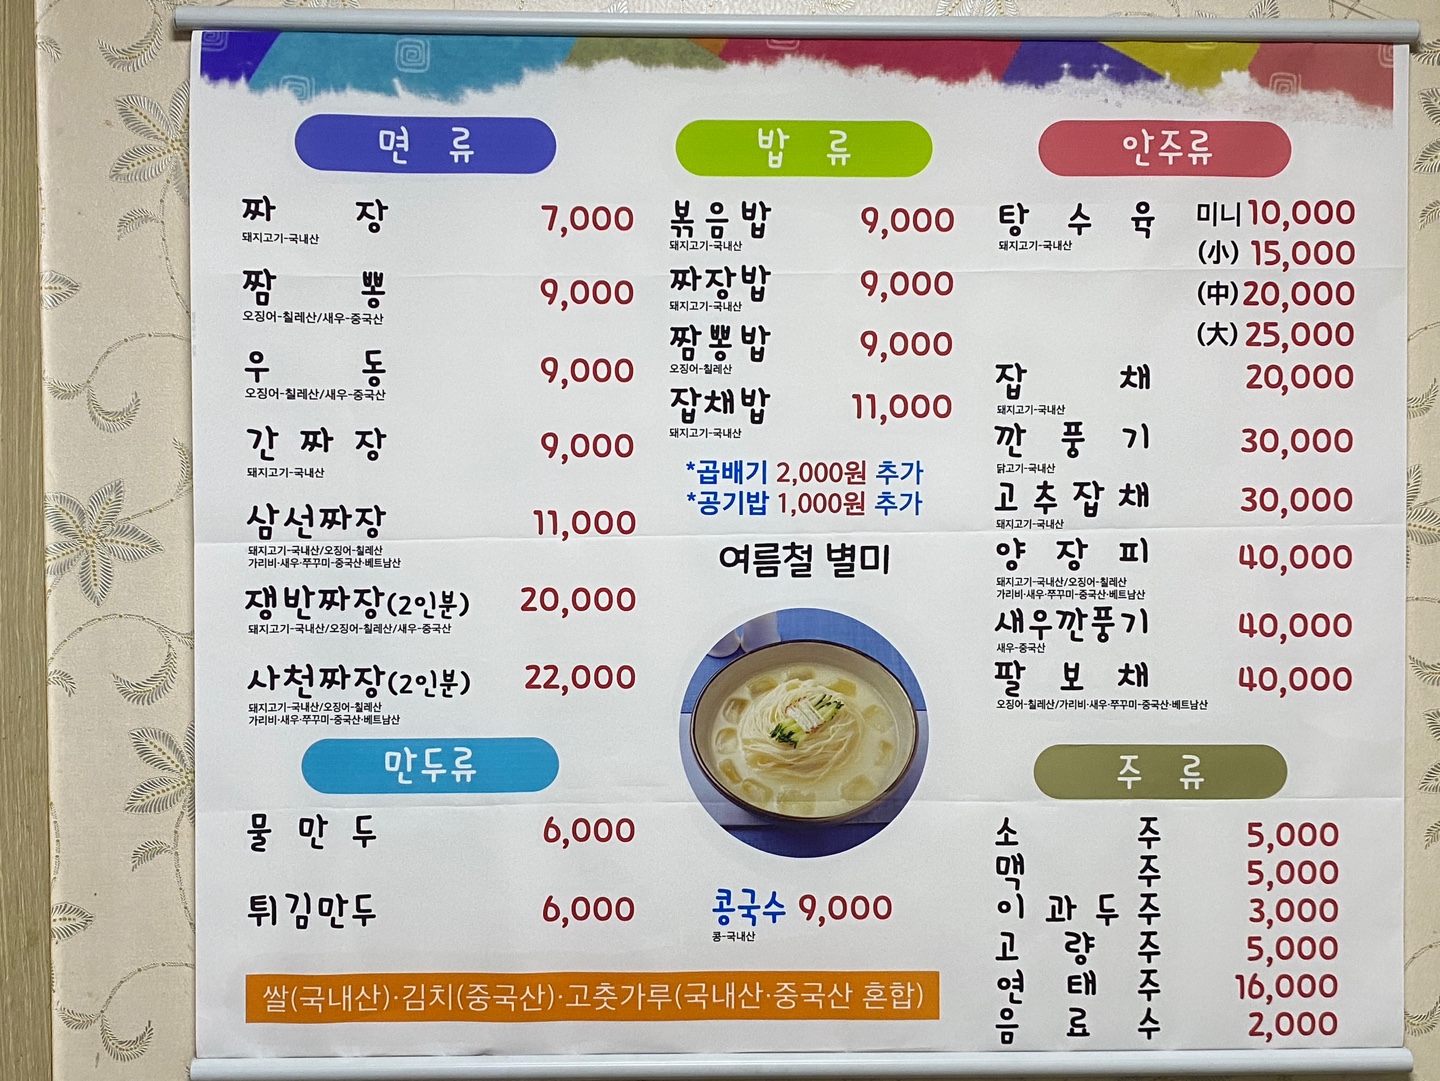 면 류
짜 장 7,000
돼지고기-국내산
짬 뽕 9,000
오징어-칠레산/새우-중국산
우 동 9,000
오징어-칠레산/새우-중국산
간 짜 장 9,000
돼지고기-국내산
삼선짜장 11,000
돼지고기-국내산/오징어-칠레산
가리비·새우·쭈꾸미-중국산·베트남산
쟁반짜장(2인분) 20,000
돼지고기-국내산/오징어-칠레산/새우-중국산
사천짜장(2인분) 22,000
돼지고기-국내산/오징어-칠레산
가리비·새우·쭈꾸미-중국산·베트남산
만두류
물 만 두 6,000
튀김만두 6,000
밥 류
볶음밥 9,000
돼지고기-국내산
짜장밥 9,000
돼지고기-국내산
짬뽕밥 9,000
오징어-칠레산
잡채밥 11,000
돼지고기-국내산
*곱배기 2,000원 추가
*공기밥 1,000원 추가
여름철 별미
콩국수 9,000
콩-국내산
안주류
탕 수 육 미니 10,000
돼지고기-국내산
(小) 15,000
(中) 20,000
(大) 25,000
잡 채 20,000
돼지고기-국내산
깐 풍 기 30,000
닭고기-국내산
고추잡채 30,000
돼지고기-국내산
양 장 피 40,000
돼지고기-국내산/오징어-칠레산
가리비·새우·쭈꾸미-중국산·베트남산
새우깐풍기 40,000
새우-중국산
팔 보 채 40,000
오징어-칠레산/가리비·새우·쭈꾸미-중국산·베트남산
주 류
소 주 5,000
맥 주 5,000
이 과 두 주 3,000
고 량 주 5,000
연 태 주 16,000
음 료 수 2,000
쌀(국내산)·김치(중국산)·고춧가루(국내산·중국산 혼합)